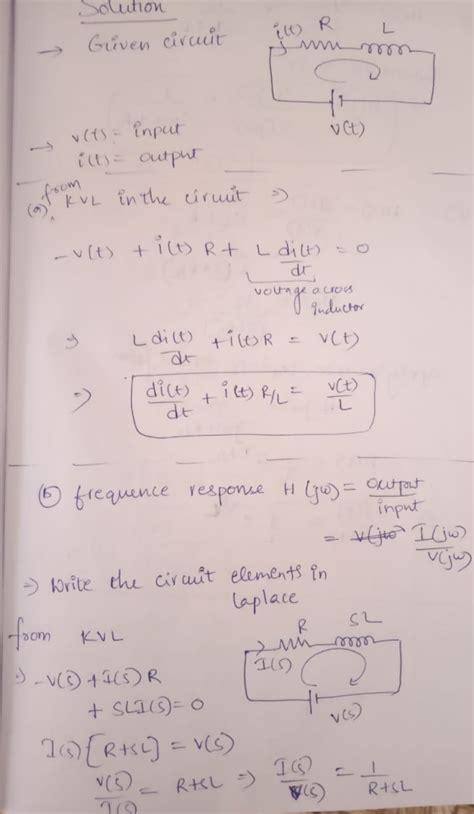 Solution
→ Given circuit
i(t) R L
v(t)
→ v(t) = input
i(t) = output
(a) from KVL in the circuit ⇒
-v(t) + i(t) R + L di(t)/dt = 0
voltage across
inductor
⇒ L di(t)/dt + i(t) R = v(t)
⇒ di(t)/dt + i(t) R/L = v(t)/L
(b) frequence response H(jω) = output/input
= V(jω) I(jω)/V(jω)
⇒ Write the circuit elements in
Laplace
from KVL
R SL
I(s)
V(s)
⇒ -V(s) + I(s) R
+ SLI(s) = 0
I(s) [R+SL] = V(s)
V(s)/I(s) = R+SL ⇒ I(s)/V(s) = 1/R+SL